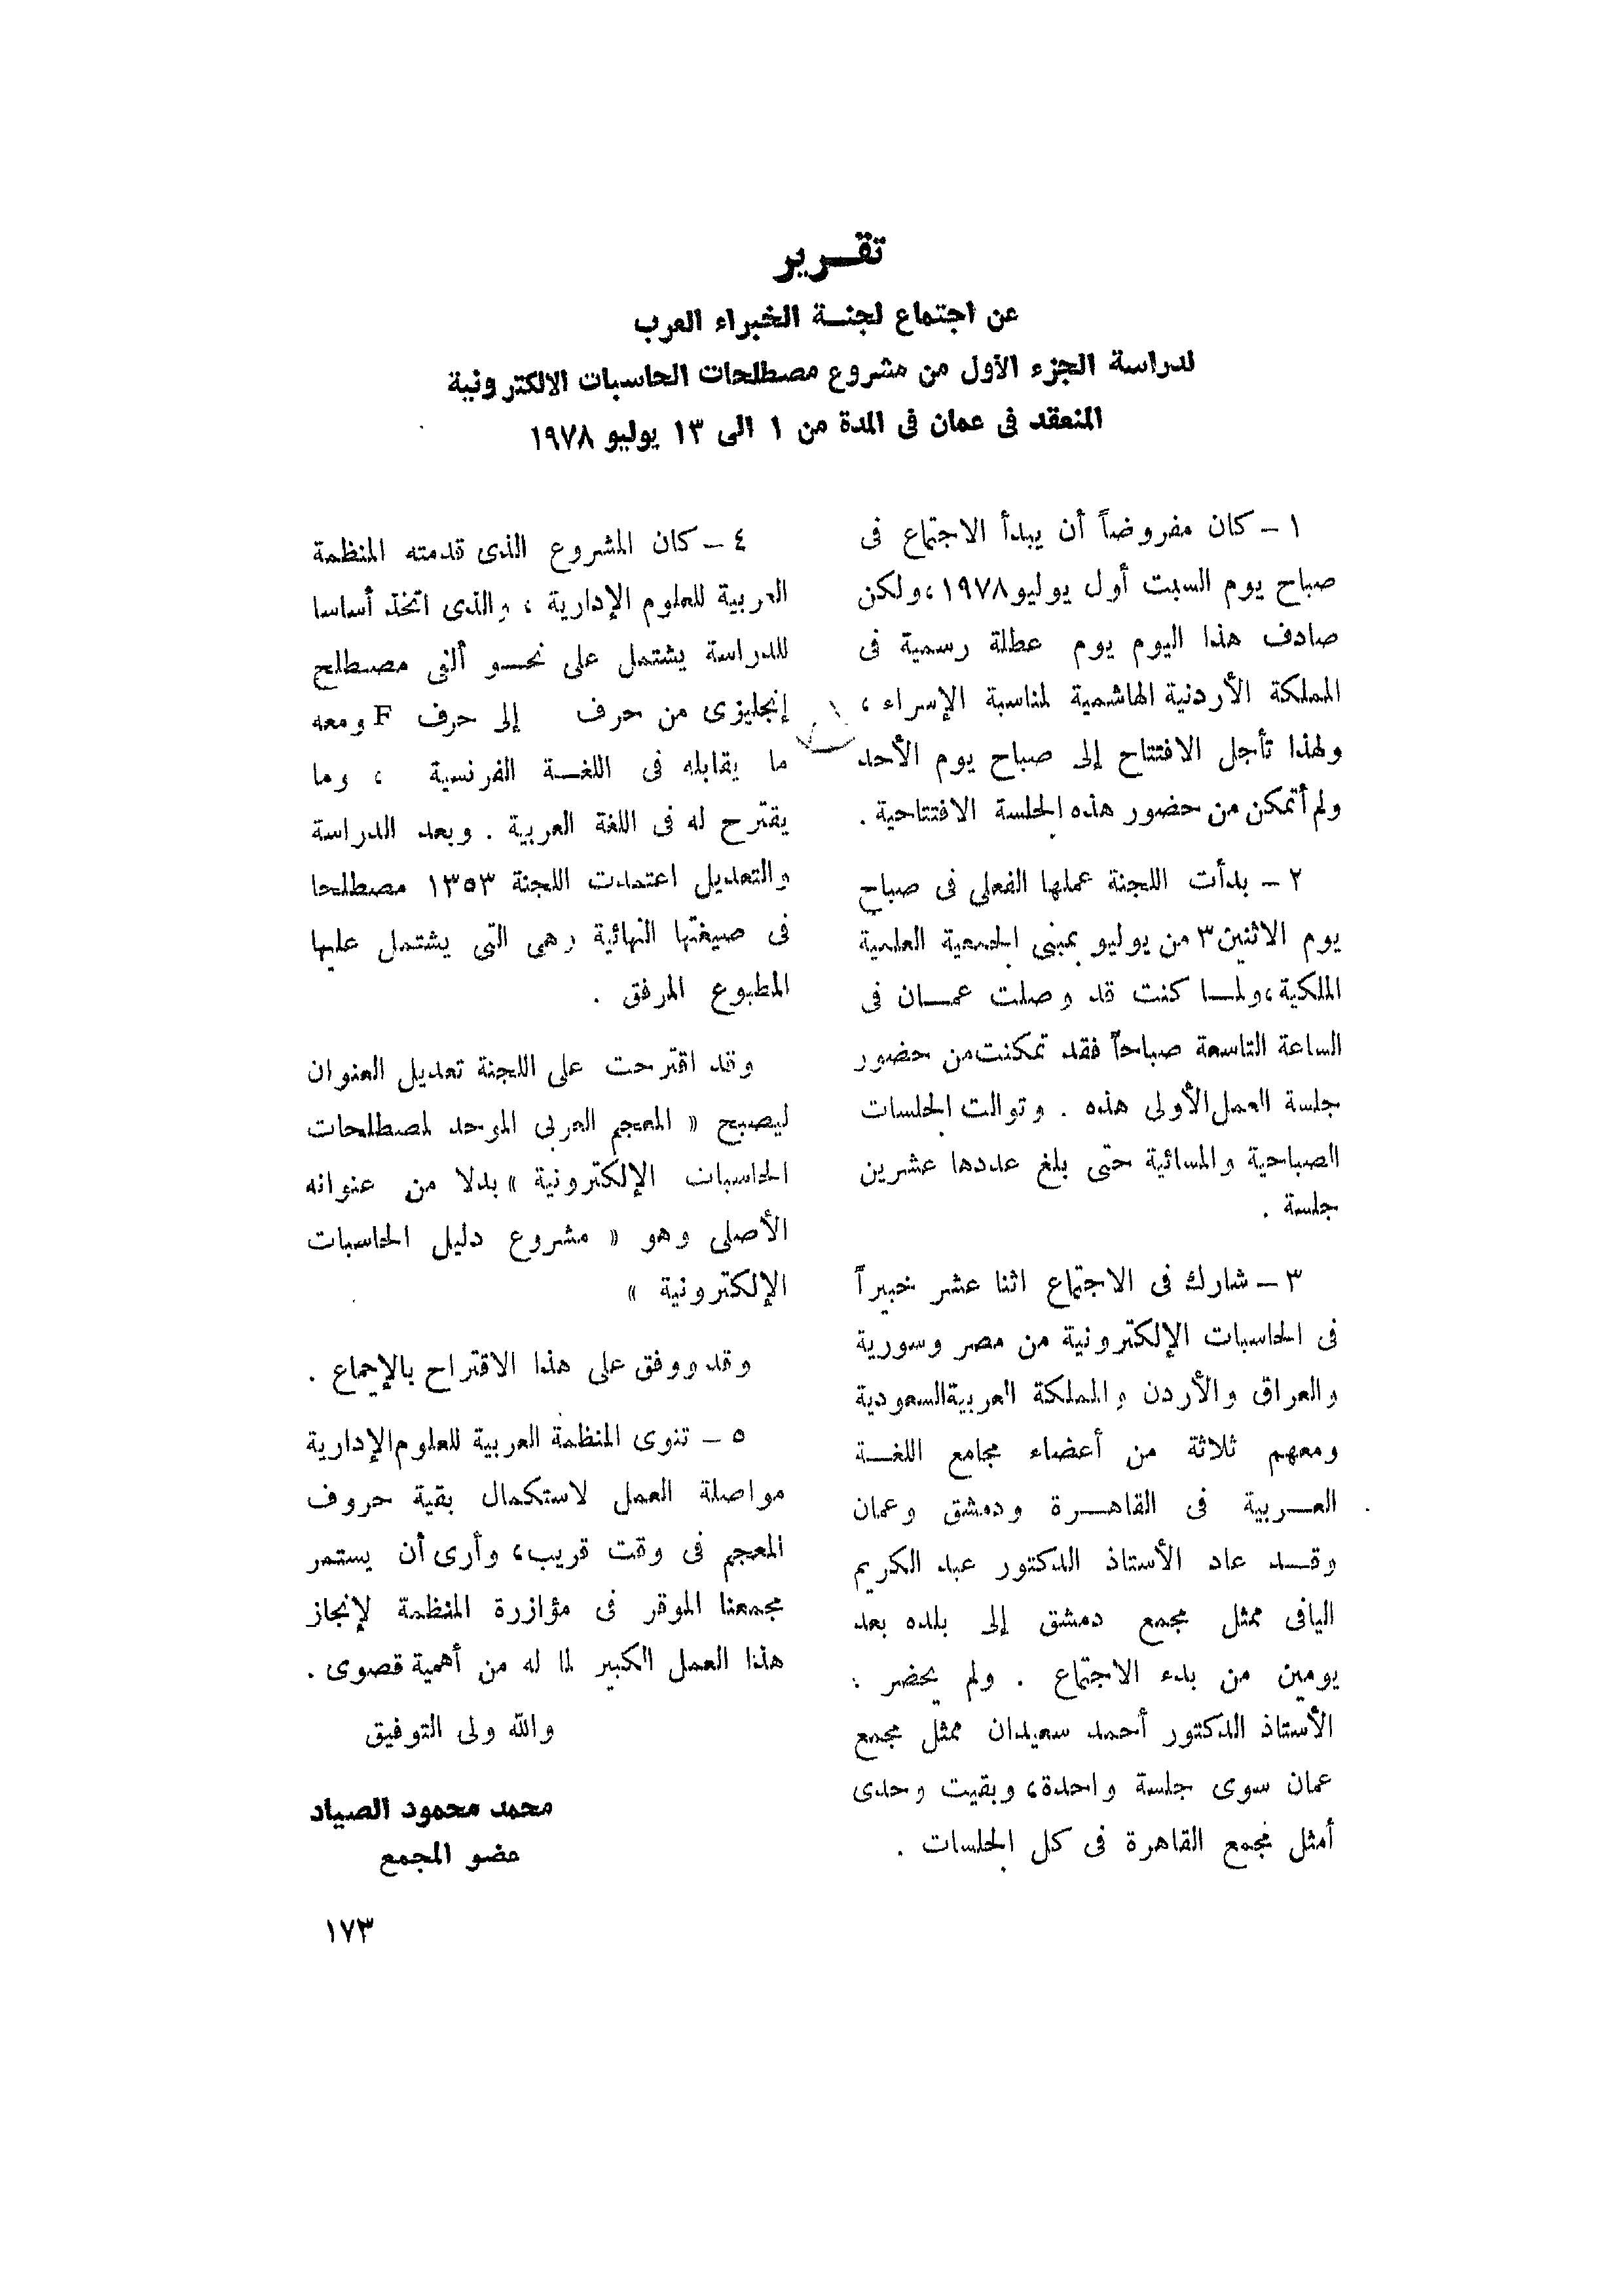 تقـــرير
عن اجتماع لجنــة الخبراء العرب
لدراسة الجزء الأول من مشروع مصطلحات الحاسبات الالكترونية
المنعقد فى عمان فى المدة من ١ الى ١٣ يوليو ١٩٧٨
١ – كان مفروضاً أن يبدأ الاجتماع فى
صباح يوم السبت أول يوليو ١٩٧٨، ولكن
صادف هذا اليوم يوم عطلة رسمية فى
المملكة الأردنية الهاشمية لمناسبة الإسراء ،
ولهذا تأجل الافتتاح إلى صباح يوم الأحد
ولم أتمكن من حضور هذه الجلسة الافتتاحية .
٢ – بدأت اللجنة عملها الفعلى فى صباح
يوم الاثنين ٣ من يوليو بمبنى الجمعية العلمية
الملكية ، ولمــا كنت قد وصلت عمــان فى
الساعة التاسعة صباحاً فقد تمكنت من حضور
جلسة العمل الأولى هذه . وتوالت الجلسات
الصباحية والمسائية حتى بلغ عددها عشرين
جلسة .
٣ – شارك فى الاجتماع اثنا عشر خبيراً
فى الحاسبات الإلكترونية من مصر وسورية
والعراق والأردن والمملكة العربية السعودية
ومعهم ثلاثة من أعضاء مجامع اللغــة
العــربية فى القاهــرة ودمشق وعمان
وقــد عاد الأستاذ الدكتور عبد الكريم
اليافى ممثل مجمع دمشق إلى بلده بعد
يومين من بدء الاجتماع . ولم يحضر :
الأستاذ الدكتور أحمد سعيدان ممثل مجمع
عمان سوى جلسة واحدة، وبقيت وحدى
أمثل مجمع القاهرة فى كل الجلسات .
٤ – كان المشروع الذى قدمته المنظمة
العربية للعلوم الإدارية ، والذى اتخذ أساسا
للدراسة يشتمل على نحــو ألفى مصطلح
إنجليزى من حرف إلى حرف F ومعه
ما يقابله فى اللغــة الفرنسية ، وما
يقترح له فى اللغة العربية . وبعد الدراسة
والتعديل اعتمدت اللجنة ١٣٥٣ مصطلحا
فى صيغتها النهائية وهى التى يشتمل عليها
المطبوع المرفق .
وقد اقترحت على اللجنة تعديل العنوان
ليصبح « المعجم العربى الموحد لمصطلحات
الحاسبات الإلكترونية » بدلا من عنوانه
الأصلى وهو « مشروع دليل الحاسبات
الإلكترونية »
وقد ووفق على هذا الاقتراح بالإجماع .
٥ – تنوى المنظمة العربية للعلوم الإدارية
مواصلة العمل لاستكمال بقية حروف
المعجم فى وقت قريب، وأرى أن يستمر
مجمعنا الموقر فى مؤازرة المنظمة لإنجاز
هذا العمل الكبير لما له من أهمية قصوى .
والله ولى التوفيق
محمد محمود الصياد
عضو المجمع
١٧٣